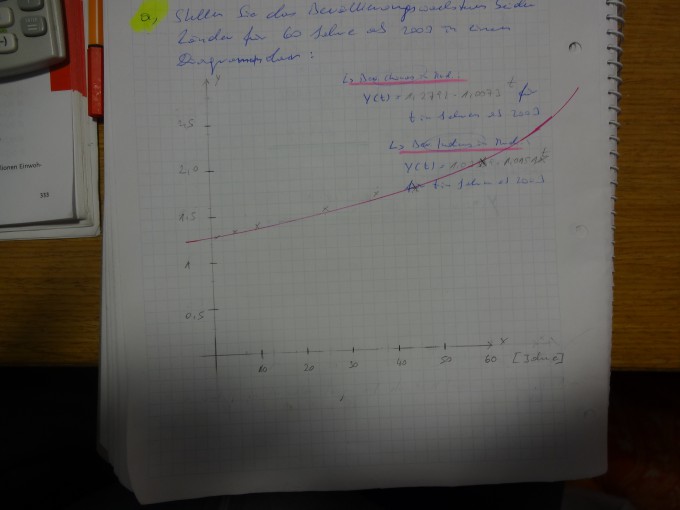 a, Stellen Sie das Bevölkerungswachstum beider
Länder für 60 Jahre ab 2009 in einem
Diagramm dar:
y
↳ Bev Chinas in Mrd:
Y(t) = 1,2793 · 1,0073^t für
t in Jahren ab 2009
↳ Bev Indiens in Mrd:
Y(t) =
t in Jahren ab 2009
2,5
2,0
1,5
1
0,5
10 20 30 40 50 60 x [Jahre]
ionen Einwoh-